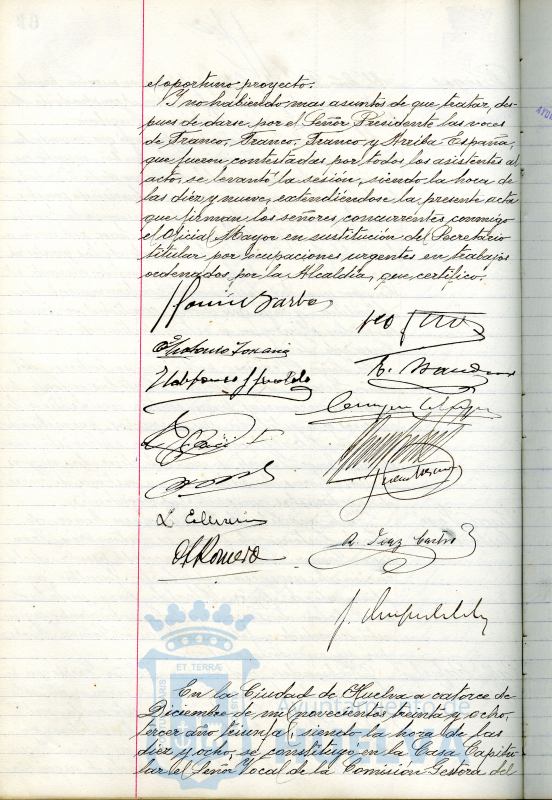 el oportuno proyecto.
Y no habiendo mas asuntos de que tratar, des-
pues de darse por el Señor Presidente las voces
de Franco, Franco, Franco y Arriba España,
que fueron contestadas por todos los asistentes al
acto, se levantó la sesión, siendo la hora de
las diez y nueve, extendiéndose la presente acta
que firman los señores concurrentes conmigo
el Oficial Mayor en sustitución del Secretario
titular por ocupaciones urgentes en trabajos
ordenados por la Alcaldía, que certifico.
Ildefonso
A. Romero
A. Diaz Castro
ET TERRÆ
Ayuntamiento de
HUELVA
En la Ciudad de Huelva a catorce de
Diciembre de mil novecientos treinta y ocho,
tercer año triunfal, siendo la hora de las
diez y ocho, se constituyó en la Casa Capitu-
lar el Señor Vocal de la Comisión Gestora del